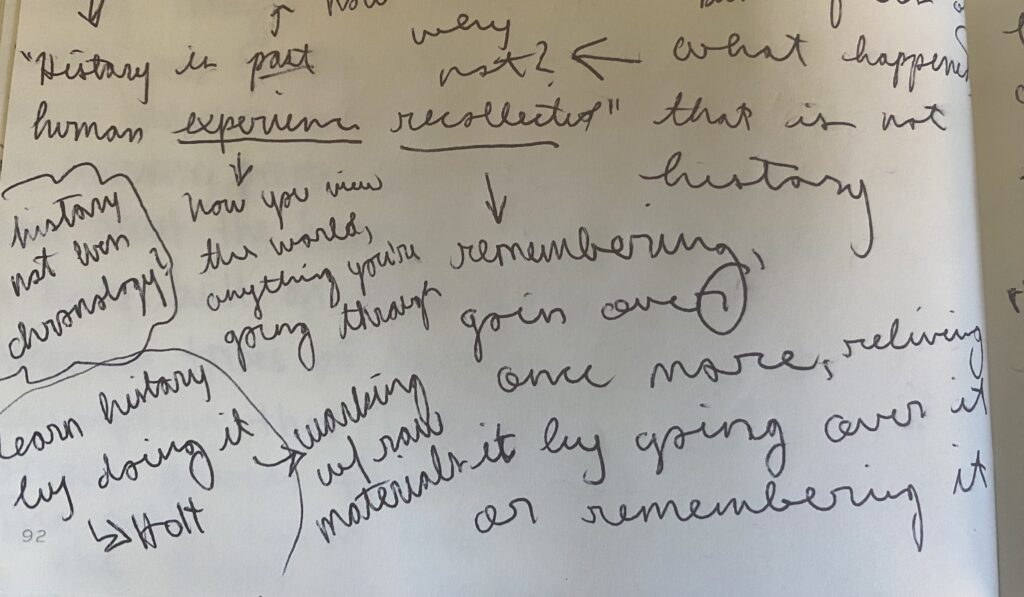 how
"History is past
human experience recollected"
why
not? ← what happened
that is not
history
history
not even
chronology?
How you view
the world,
anything you're
going through
remembering,
goin over
once more, reliving
it by going over it
or remembering it
Learn history
by doing it
↳ Holt
→ working
w/ raw
materials
92